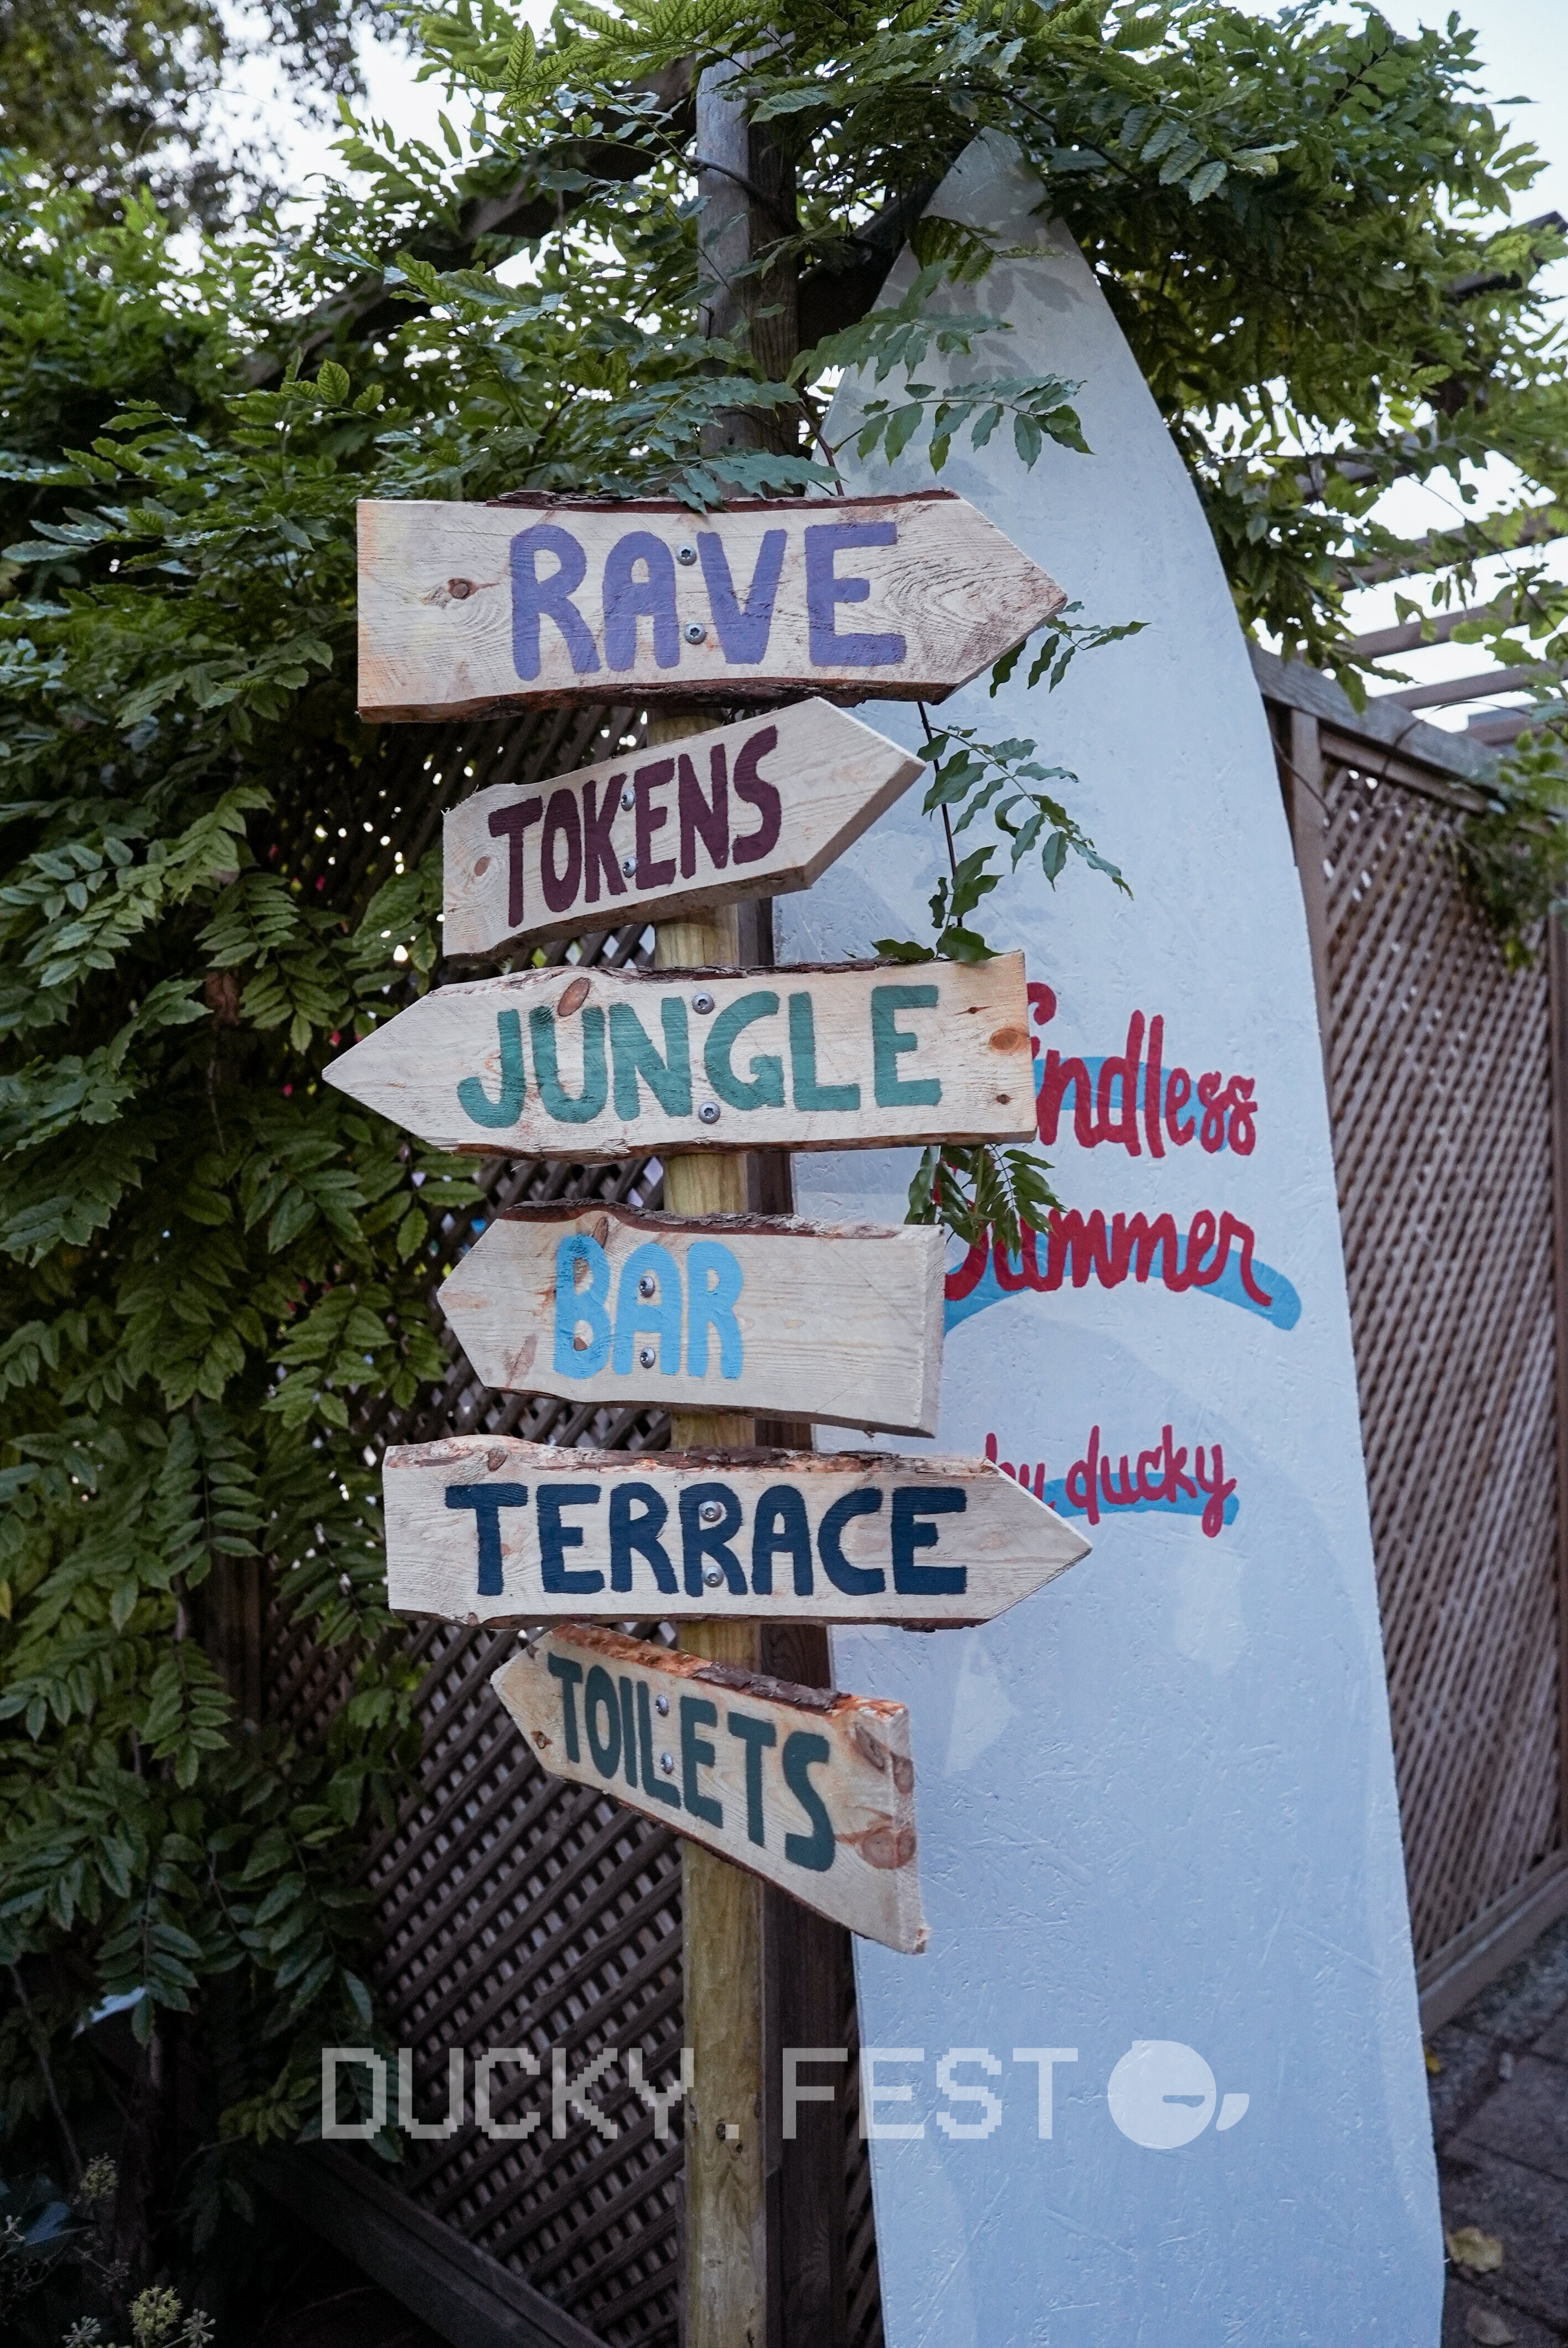 RAVE
TOKENS
JUNGLE
BAR
TERRACE
TOILETS
Endless
Summer
by ducky
DUCKY.FEST